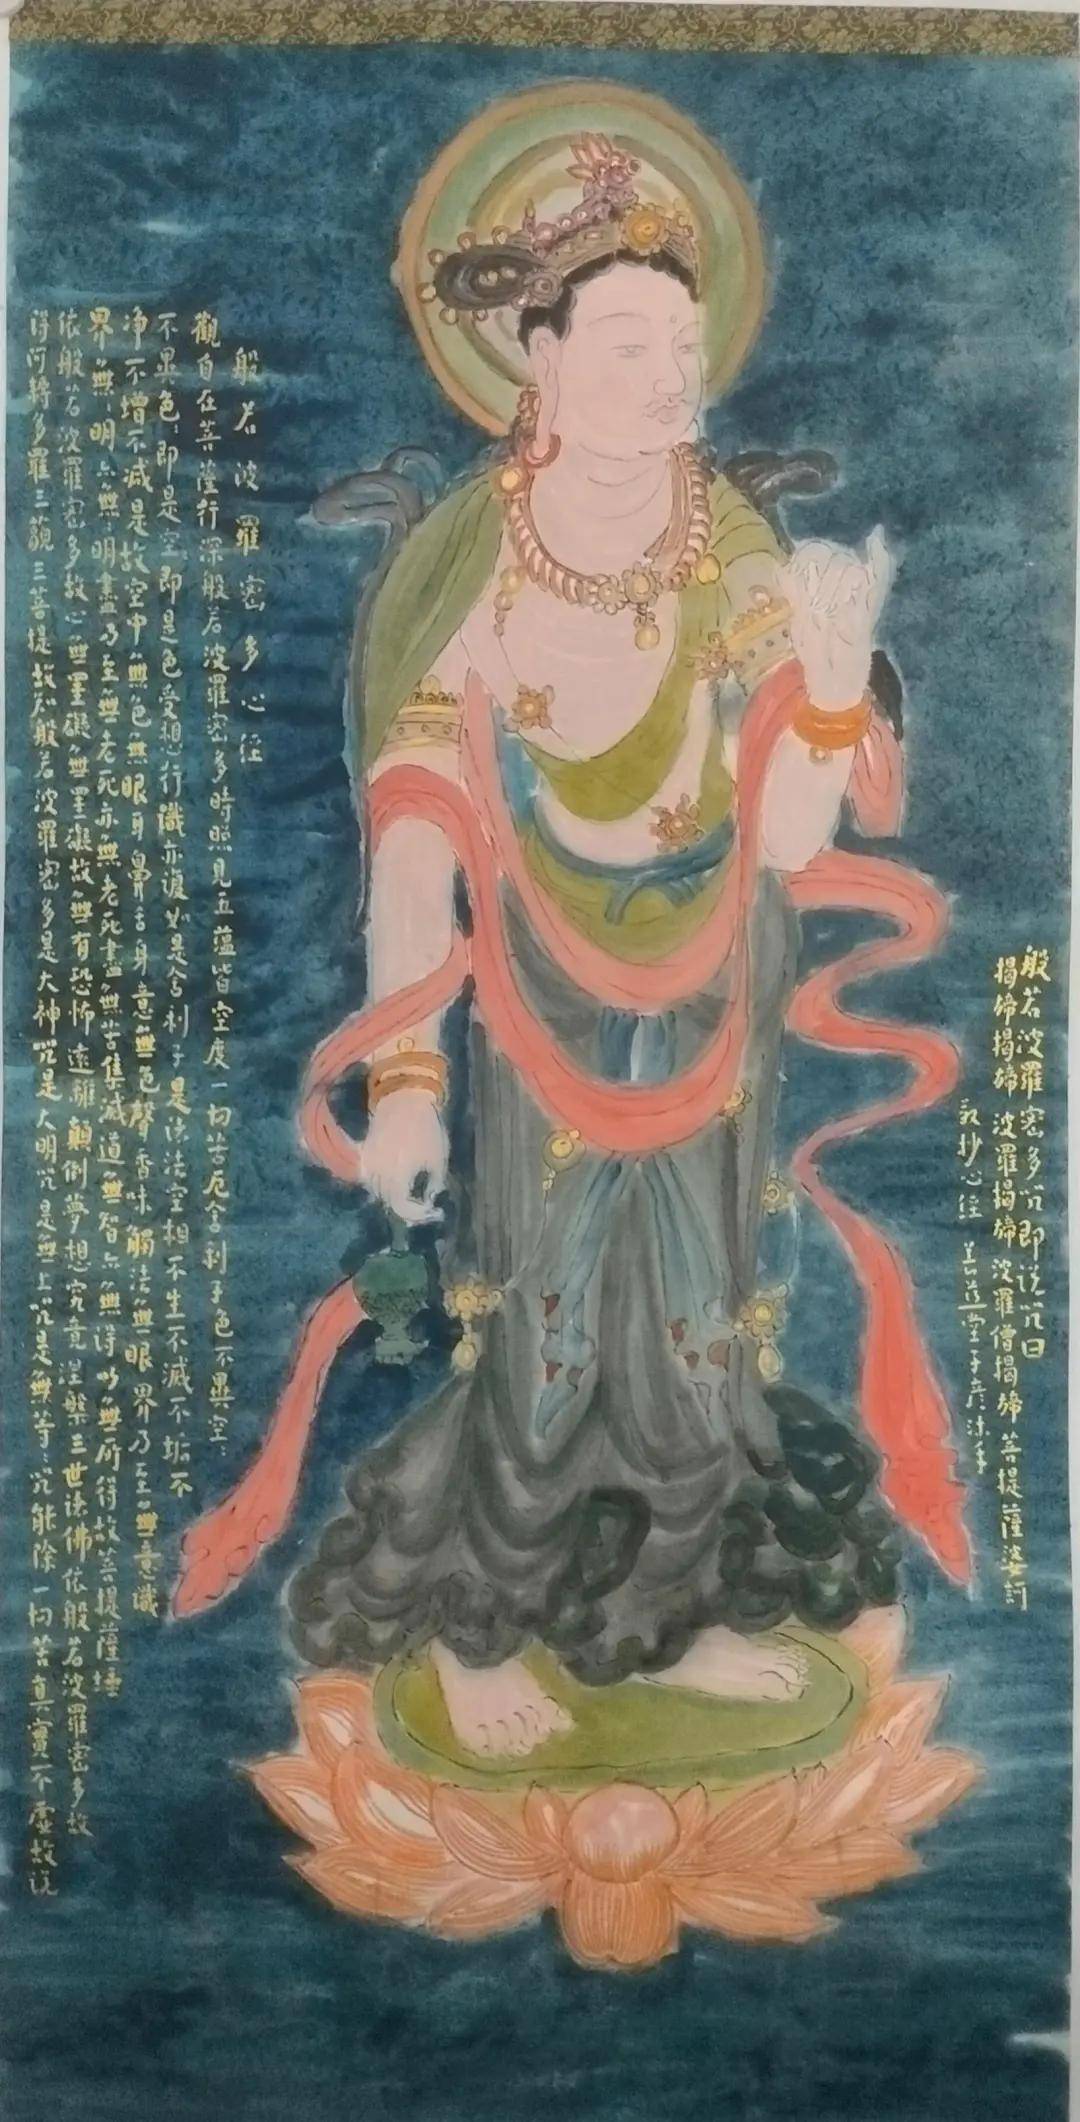 般若波羅密多心经
觀自在菩薩行深般若波羅密多時照見五蕴皆空度一切苦厄舍利子色不異空:
不異色:即是空:即是色受想行識亦復如是舍利子是诸法空相不生不滅不垢不
净不增不减是故空中無色無眼耳鼻舌身意無色聲香味觸法無眼界乃至無意識
界無:明亦無:明盡乃至無老死亦無老死盡無苦集滅道無智亦無得以無所得故菩提薩埵
依般若波羅密多故心無罣礙無罣礙故無有恐怖遠離顛倒夢想究竟涅槃三世诸佛依般若波羅密多故
得阿耨多羅三藐三菩提故知般若波羅密多是大神咒是大明咒是無上咒是無等:咒能除一切苦真實不虚故说
般若波羅密多咒即说咒曰
揭締揭締 波羅揭締 波羅僧揭締 菩提薩婆訶
敬抄心经 堂子彦沐手